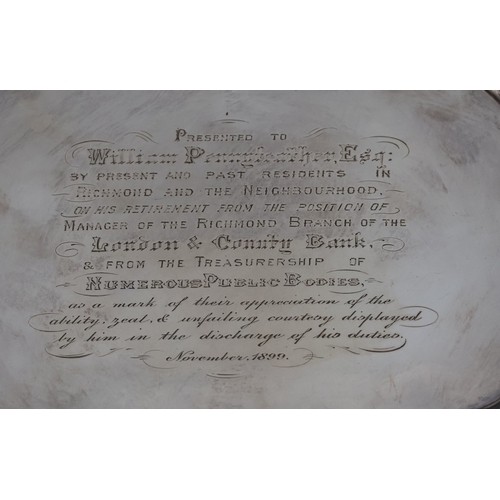 Presented to
William Pennyfeather, Esq:
by present and past residents in
Richmond and the Neighbourhood,
on his retirement from the position of
Manager of the Richmond Branch of the
London & County Bank,
& from the Treasurership of
Numerous Public Bodies,
as a mark of their appreciation of the
ability, zeal, & unfailing courtesy displayed
by him in the discharge of his duties.
November, 1899.